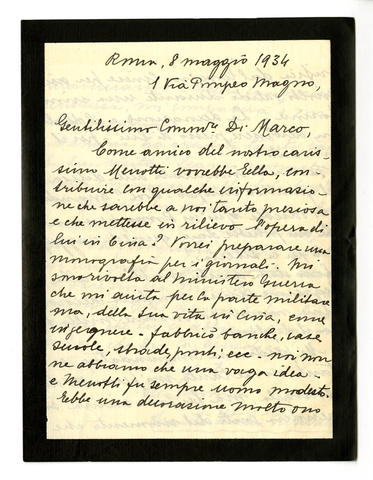 Roma, 8 maggio 1934
1 Via Pompeo Magno,
Gentilissimo Comm.re Di Marco,
Come amico del nostro caris-
simo Menotti vorrebbe Ella, con-
tribuire con qualche informazio-
ne che sarebbe a noi tanto preziosa
e che mettesse in rilievo l'opera di
lui in Cina? Vorrei preparare una
monografia per i giornali. Mi
sono rivolta al Ministero Guerra
che mi aiuta per la parte militare
ma, della sua vita in Cina, come
ingegnere - fabbricò banche, case
scuole, strade, ponti, ecc - noi non
ne abbiamo che una vaga idea -
e Menotti fu sempre uomo modesto.
Ebbe una decorazione molto ono